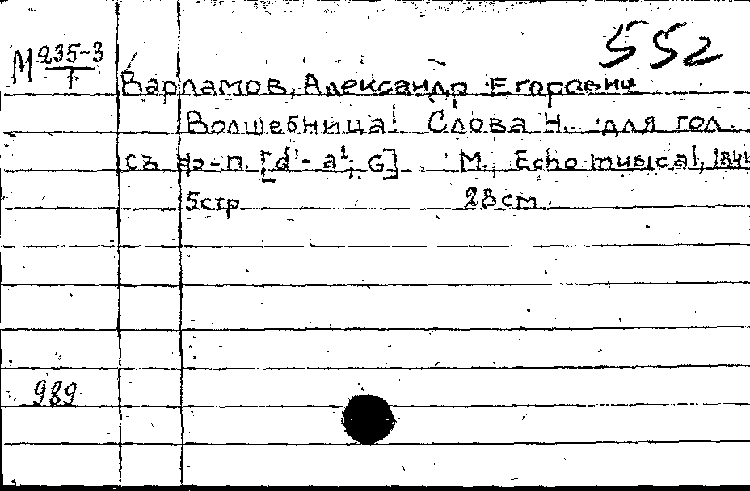 552
М 235-3
1
Варламов, Александр Егорович
Волшебница! Слова Н.. для гол.
съ ф-п. [d'- a¹; G] М., Echo musical, 184
5 стр 28 см
989